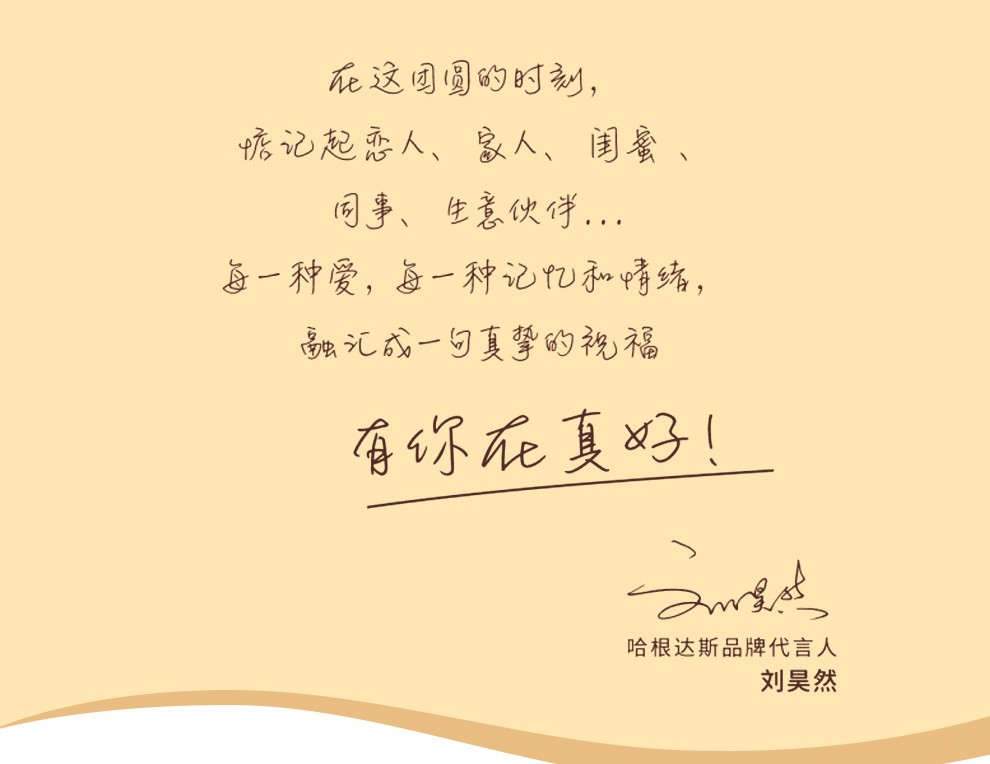 在这团圆的时刻，
惦记起恋人、家人、闺蜜、
同事、生意伙伴...
每一种爱，每一种记忆和情绪，
融汇成一句真挚的祝福
有你在真好！
刘昊然
哈根达斯品牌代言人
刘昊然